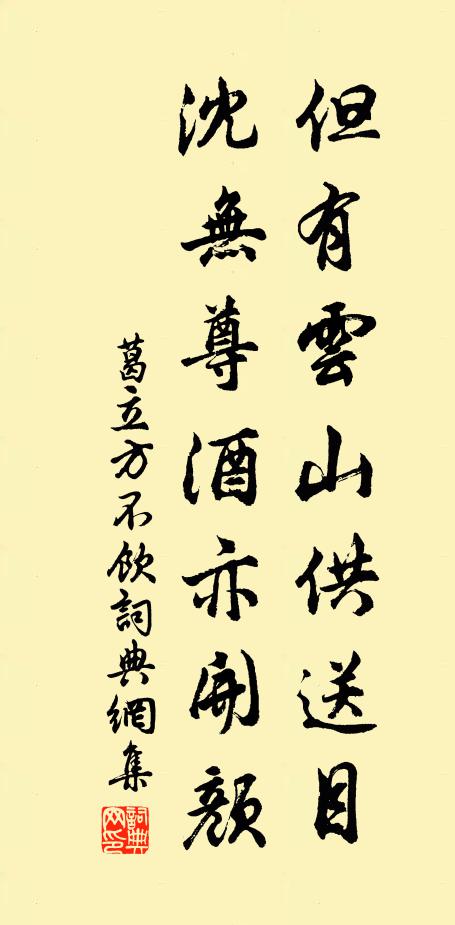 但有雲山供送目
沈無尊酒亦開顏
葛立方不飲詞典網集
詞典網印